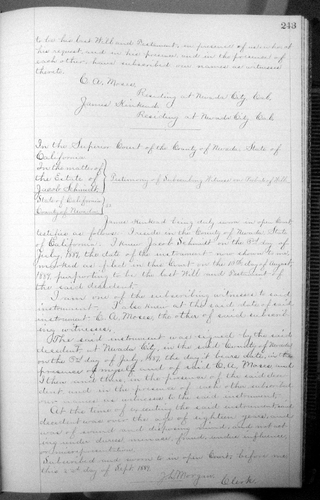 243
to be his last Will and Testament, in presence of us who at
his request, and in his presence and in the presence of
each other, have subscribed our names as witnesses
thereto.
C. A. Moses
Residing at Nevada City, Cal.
James Kinkead
Residing at Nevada City Cal.
In the Superior Court of the County of Nevada State of
California
In the matter of
the Estate of
Jacob Schmidt
Testimony of Subscribing Witness on Probate of Will.
State of California
County of Nevada
ss
James Kinkead being duly sworn in open Court
testifies as follows: I reside in the County of Nevada State
of California. I knew Jacob Schmidt on the 3rd day of
July 1882, the date of the instrument now shown to me,
marked as filed in this Court on the day of August,
purporting to be the last Will and Testament of
the said decedent.
I was one of the subscribing witnesses to said
instrument. I also knew at the said date of said
instrument C. A. Moses, the other of said subscri-
bing witnesses.
The said instrument was signed by the said
decedent at Nevada City in the said County of Nevada
on the 3rd day of July, the day it bears date, in the
presence of myself and of said C. A. Moses and
I then and there, in the presence of the said dece-
dent, and in the presence of each other subscribed
our names as witnesses to the said instrument.
At the time of executing the said instrument said
decedent was over the age of eighteen years, and
was of sound and disposing mind, and not act-
ing under duress menace, fraud, undue influence,
or misrepresentation.
Subscribed and sworn to in open Court, before me
this day of Sept.
Morgan
Clerk